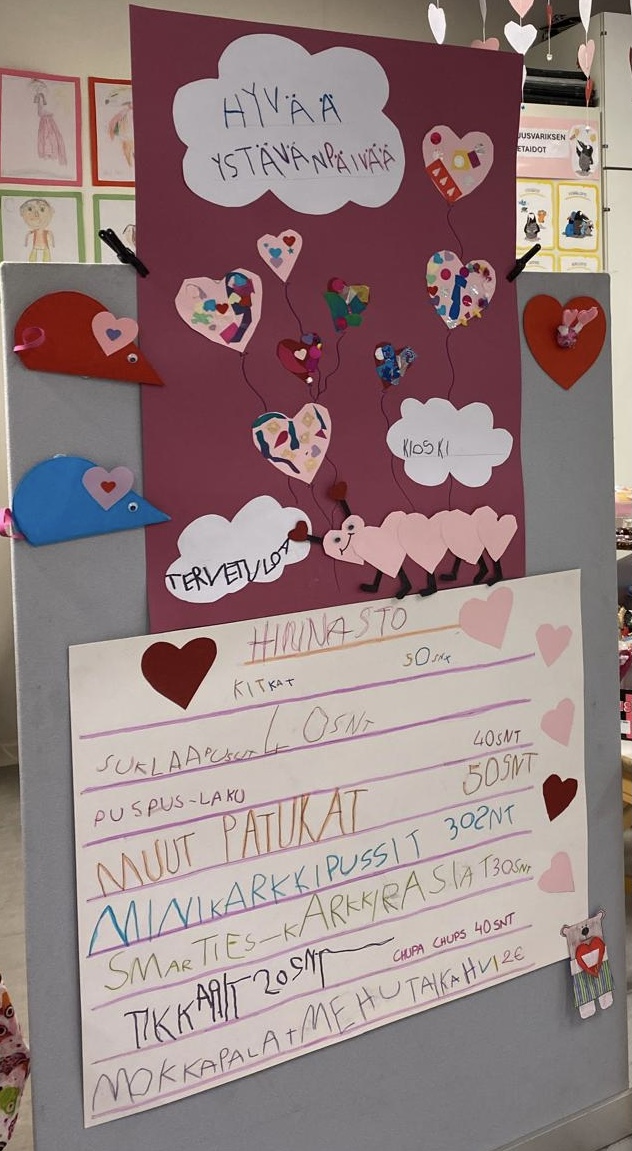 HYVÄÄ
YSTÄVÄNPÄIVÄÄ
USVARIKSEN
ETAIDOT
KIOSKI
TERVETULOA
HINNASTO
KITKAT 50SNT
SUKLAAPUSUT 40SNT
PUSPUS-LAKU 40SNT
MUUT PATUKAT 50SNT
MINIKARKKIPUSSIT 30SNT
SMARTIES-KARKKIRASIAT 30SNT
TIKKARIT 20SNT CHUPA CHUPS 40SNT
MOKKAPALA+MEHU TAI KAHVI 2€